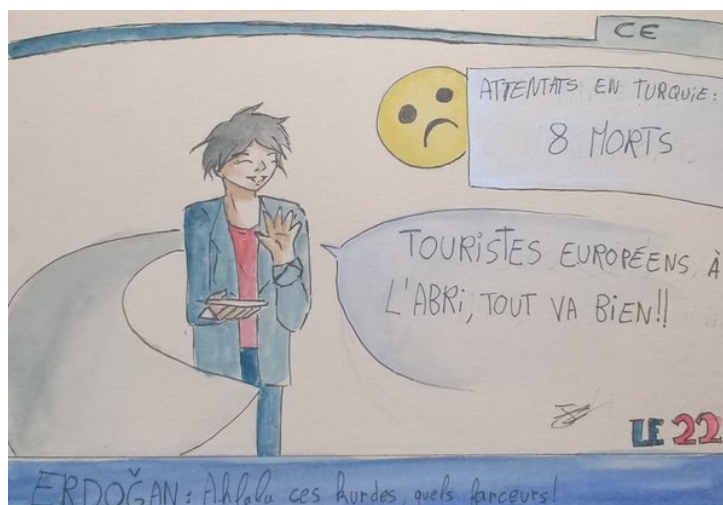 CE
ATTENTATS EN TURQUIE:
8 MORTS
TOURISTES EUROPÉENS À
L'ABRI, TOUT VA BIEN!!
LE 22
ERDOĞAN: Ahlala ces kurdes, quels farceurs!